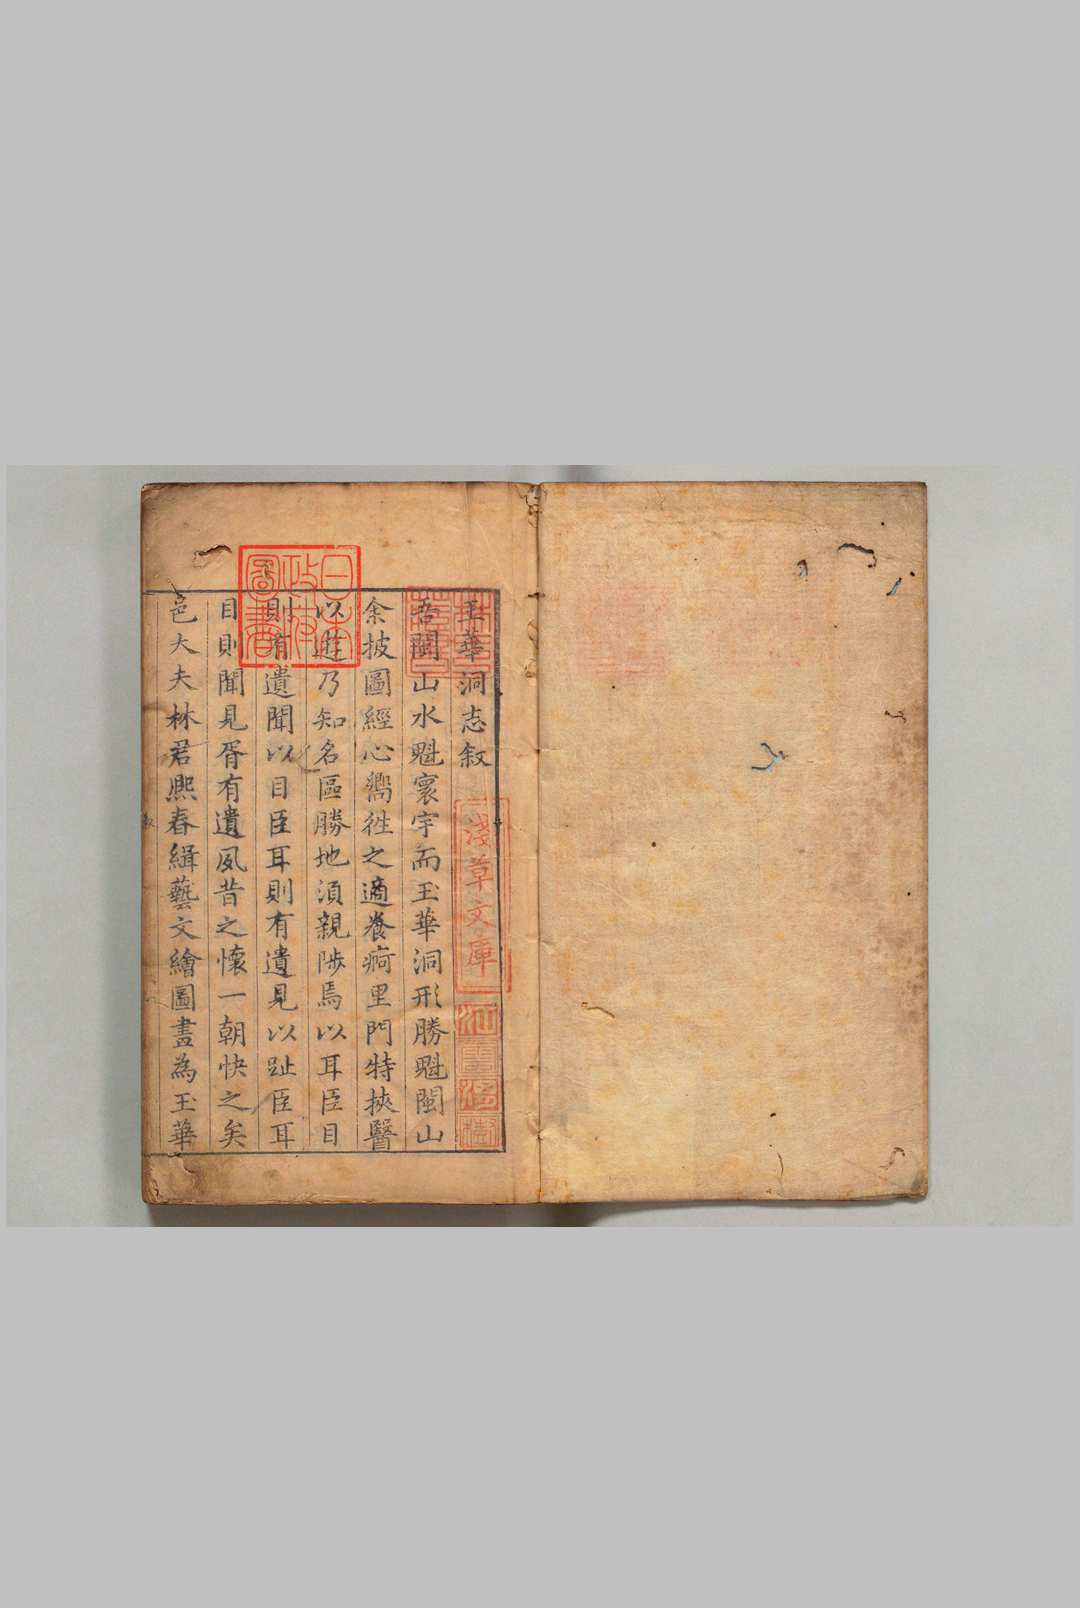 玉華洞志敘
吾閩山水魁寰宇而玉華洞形勝魁閩山
余披圖經心嚮徃之適養痾里門特挾醫
以遊乃知名區勝地須親陟焉以耳臣目
則有遺聞以目臣耳則有遺見以趾臣耳
目則聞見胥有遺夙昔之懷一朝快之矣
邑大夫林君熈春緝藝文繪圖畫為玉華
日本政府圖書
淺草文庫